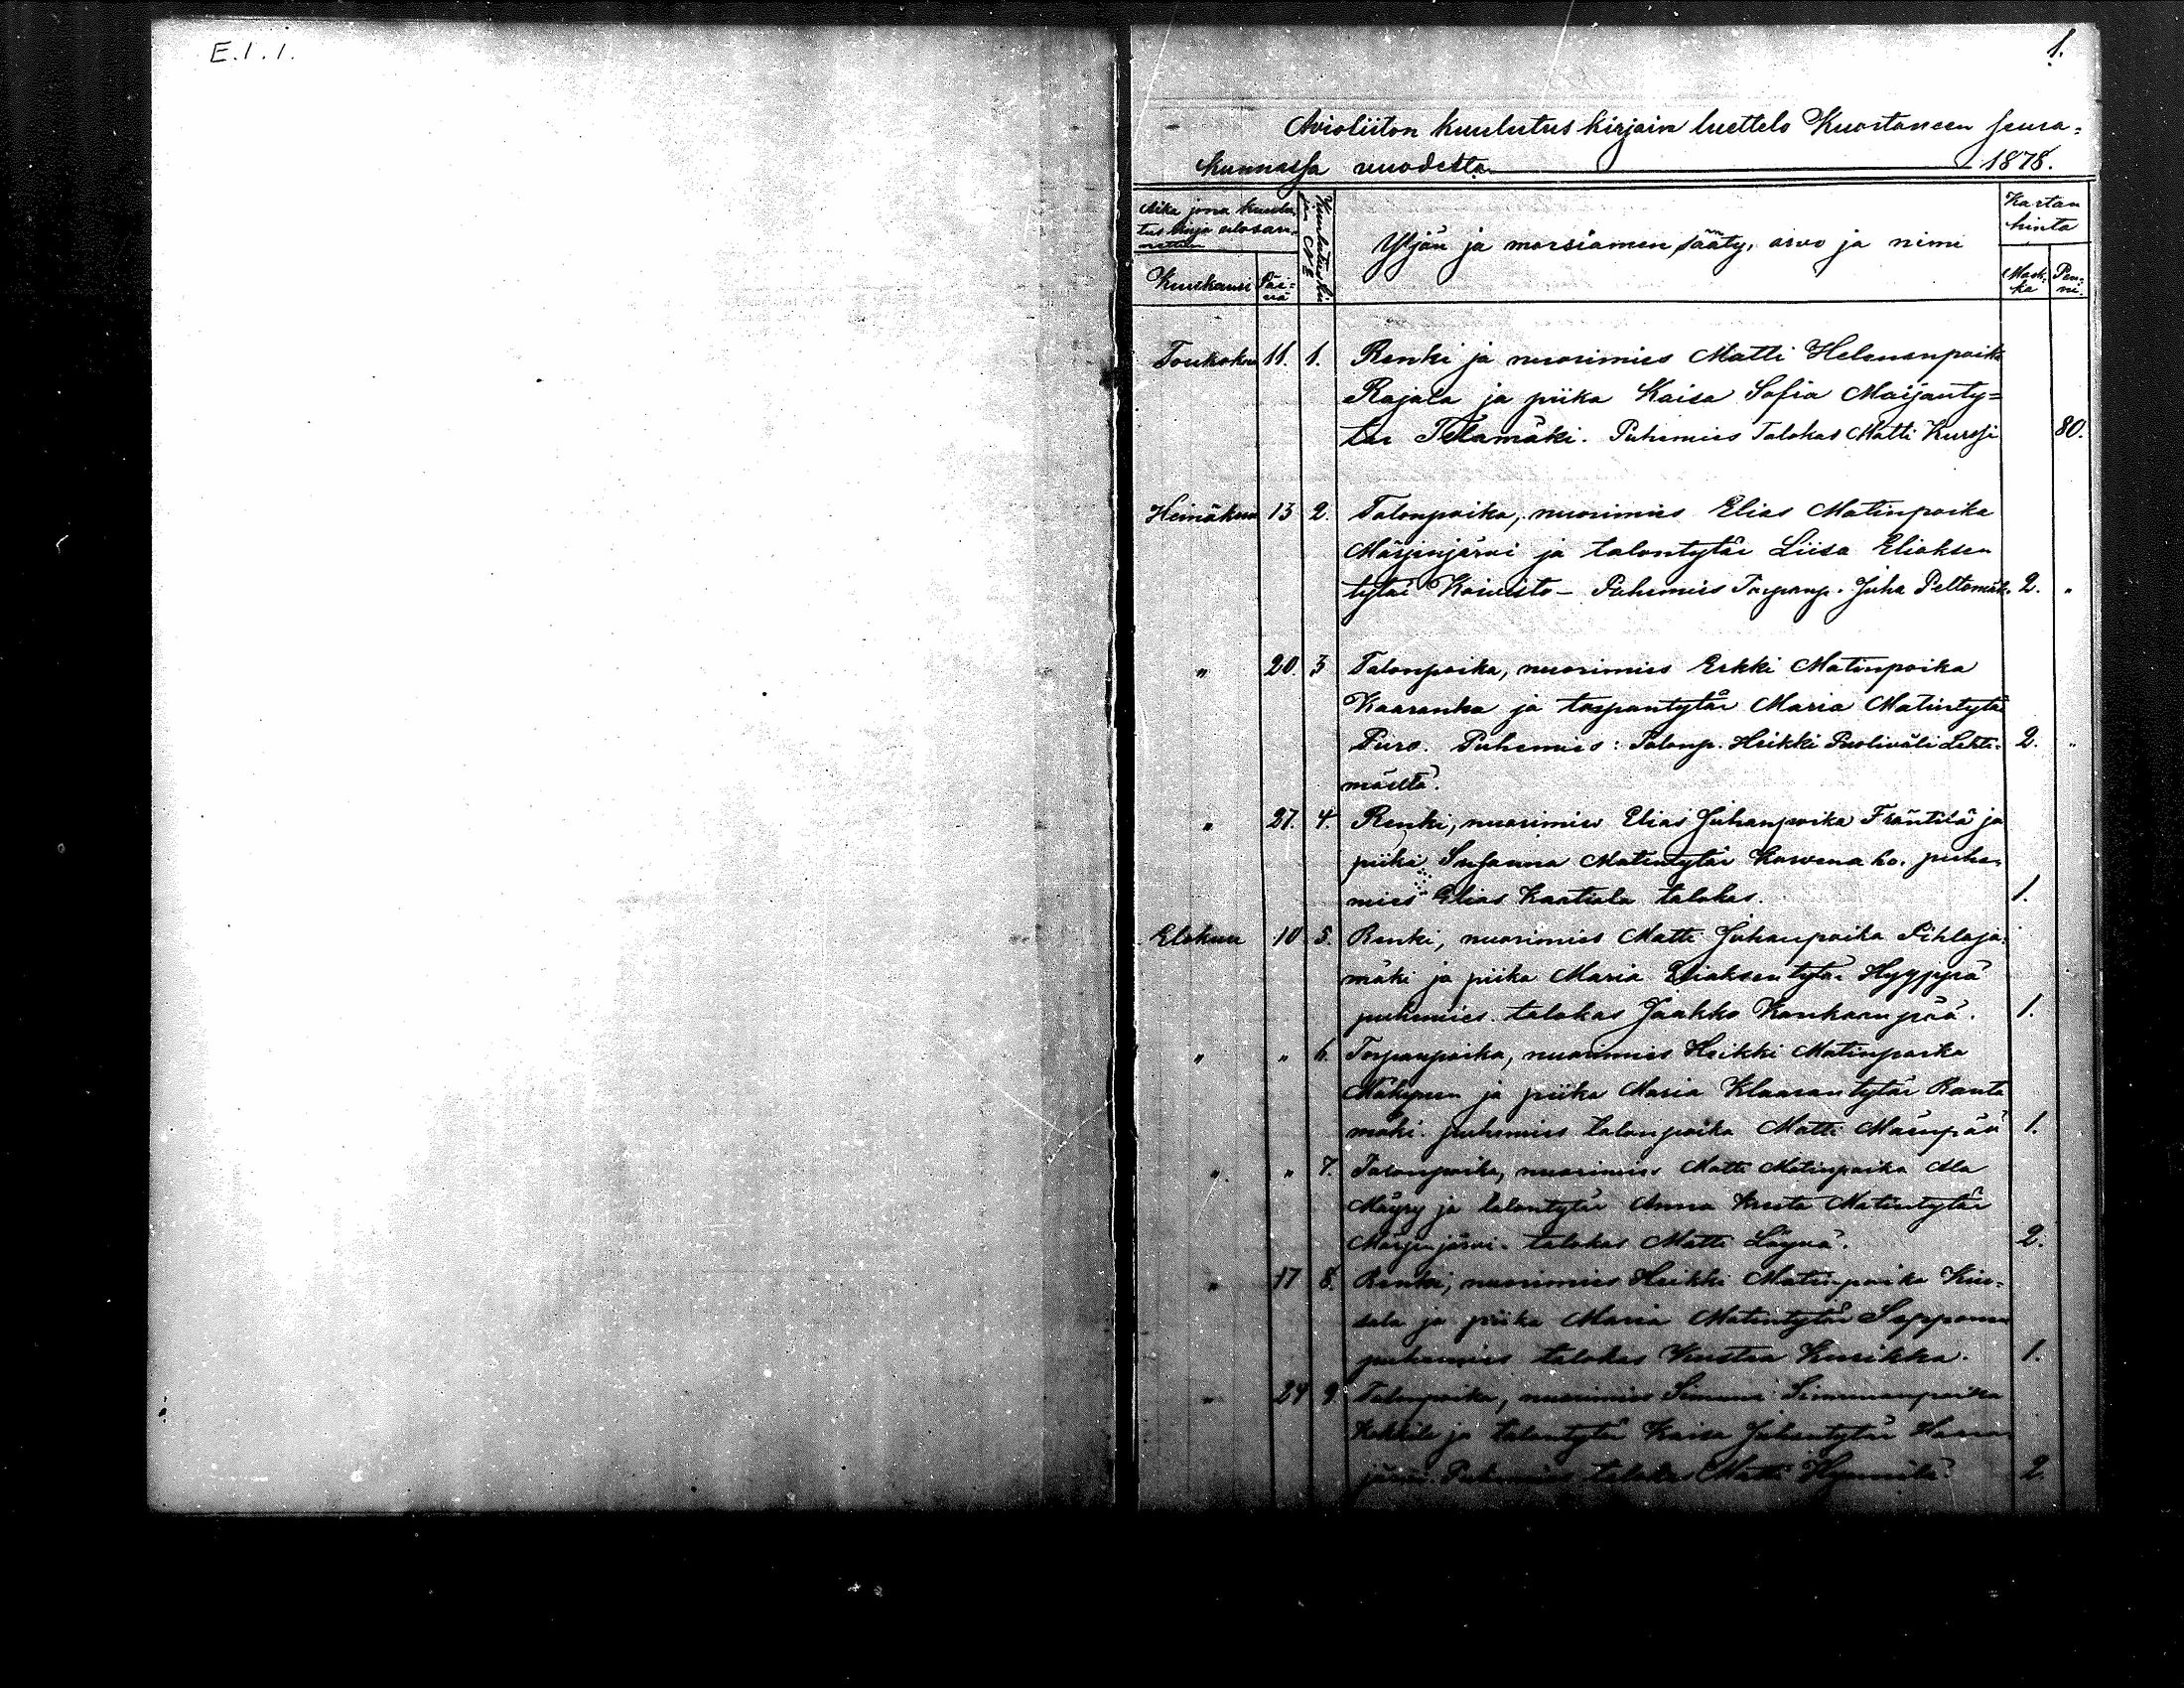 E.I.1.
1.
Avioliiton kuulutus kirjain luettelo Kuortaneen seura-
kunnassa vuodesta 1878.
Aika jona kuulu-
tus kirja ulosan-
nettiin
Kuulutuski-
jan No
Yljän ja morsiamen sääty, arvo ja nimi
Kartan
hinta
Kuukausi
Päi-
vä
Mark-
ka
Pen-
ni
Toukokuu 11. 1. Renki ja nuorimies Matti Helenanpoika
Rajala ja piika Kaisa Sofia Maijanty-
tär Telamäki. Puhemies Talokas Matti Kurssi 80.
Heinäkuu 13 2. Talonpoika, nuorimies Elias Matinpoika
Märjenjärvi ja talontytär Liisa Eliaksen
tytär Koivisto - Puhemies Torpanp. Juha Peltomäk. 2. "
" 20. 3 Talonpoika, nuorimies Erkki Matinpoika
Kaaranka ja torpantytär Maria Matintytär
Puro. Puhemies: Talonp. Heikki Puoliväli Lehti-
mäeltä.
" 27. 4. Renki, nuorimies Elias Juhanpoika Fräntilä ja
piika Susanna Matintytär Korvenaho. puhe-
mies Elias Kaatiala talokas. 1.
Elokuu 10 5. Renki, nuorimies Matti Juhanpoika Pihlaja-
mäki ja piika Maria Eliaksen tytär Hyyppyrä
puhemies. talokas Jaakko Kankaanpää. 1.
" " 6. Torpanpoika, nuorimies Heikki Matinpoika
Mäkinen ja piika Maria Klaarantytär Ranta
mäki. puhemies talonpoika Matti Mäenpää 1.
" " 7. Talonpoika, nuorimies Matti Matinpoika Ala
Mäyry ja talontytär Anna Kusta Matintytär
Märjenjärvi. talokas Matti Löyvä. 2.
" 17 8. Renki, nuorimies Heikki Matinpoika Kiu-
sala ja piika Maria Matintytär Sepponen
puhemies talokas Kustaa Kuusikko. 1.
" 24 9. Talonpoika, nuorimies Simuni Simunanpoika
Kokkila ja talontytär Kaisa Juhantytär Haara
järvi. Puhemies talokas Matti Hynnilä 2